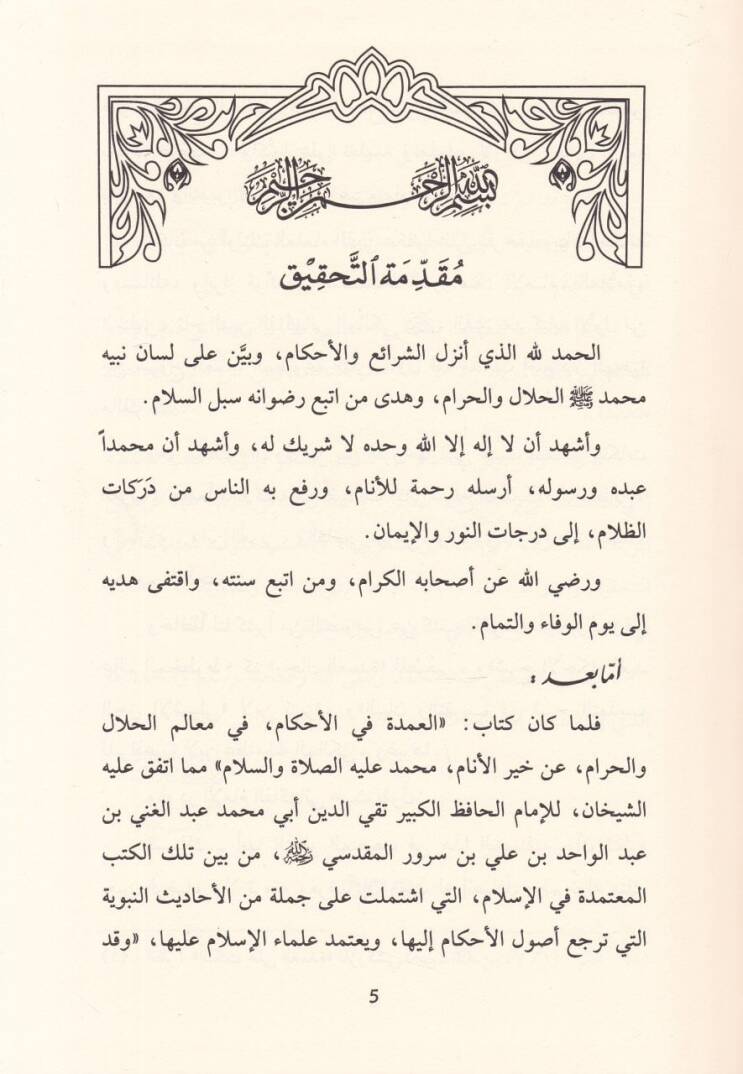 بسم الله الرحمن الرحيم
مُقَدِّمَة التَّحقِيْق
الحمد لله الذي أنزل الشرائع والأحكام، وبيَّن على لسان نبيه
محمد ﷺ الحلال والحرام، وهدى من اتبع رضوانه سبل السلام.
وأشهد أن لا إله إلا الله وحده لا شريك له، وأشهد أن محمداً
عبده ورسوله، أرسله رحمة للأنام، ورفع به الناس من دَرَكات
الظلام، إلى درجات النور والإيمان.
ورضي الله عن أصحابه الكرام، ومن اتبع سنته، واقتفى هديه
إلى يوم الوفاء والتمام.
أمّا بعد :
فلما كان كتاب: «العمدة في الأحكام، في معالم الحلال
والحرام، عن خير الأنام، محمد عليه الصلاة والسلام» مما اتفق عليه
الشيخان، للإمام الحافظ الكبير تقي الدين أبي محمد عبد الغني بن
عبد الواحد بن علي بن سرور المقدسي رحمه الله، من بين تلك الكتب
المعتمدة في الإسلام، التي اشتملت على جملة من الأحاديث النبوية
التي ترجع أصول الأحكام إليها، ويعتمد علماء الإسلام عليها، «وقد
5